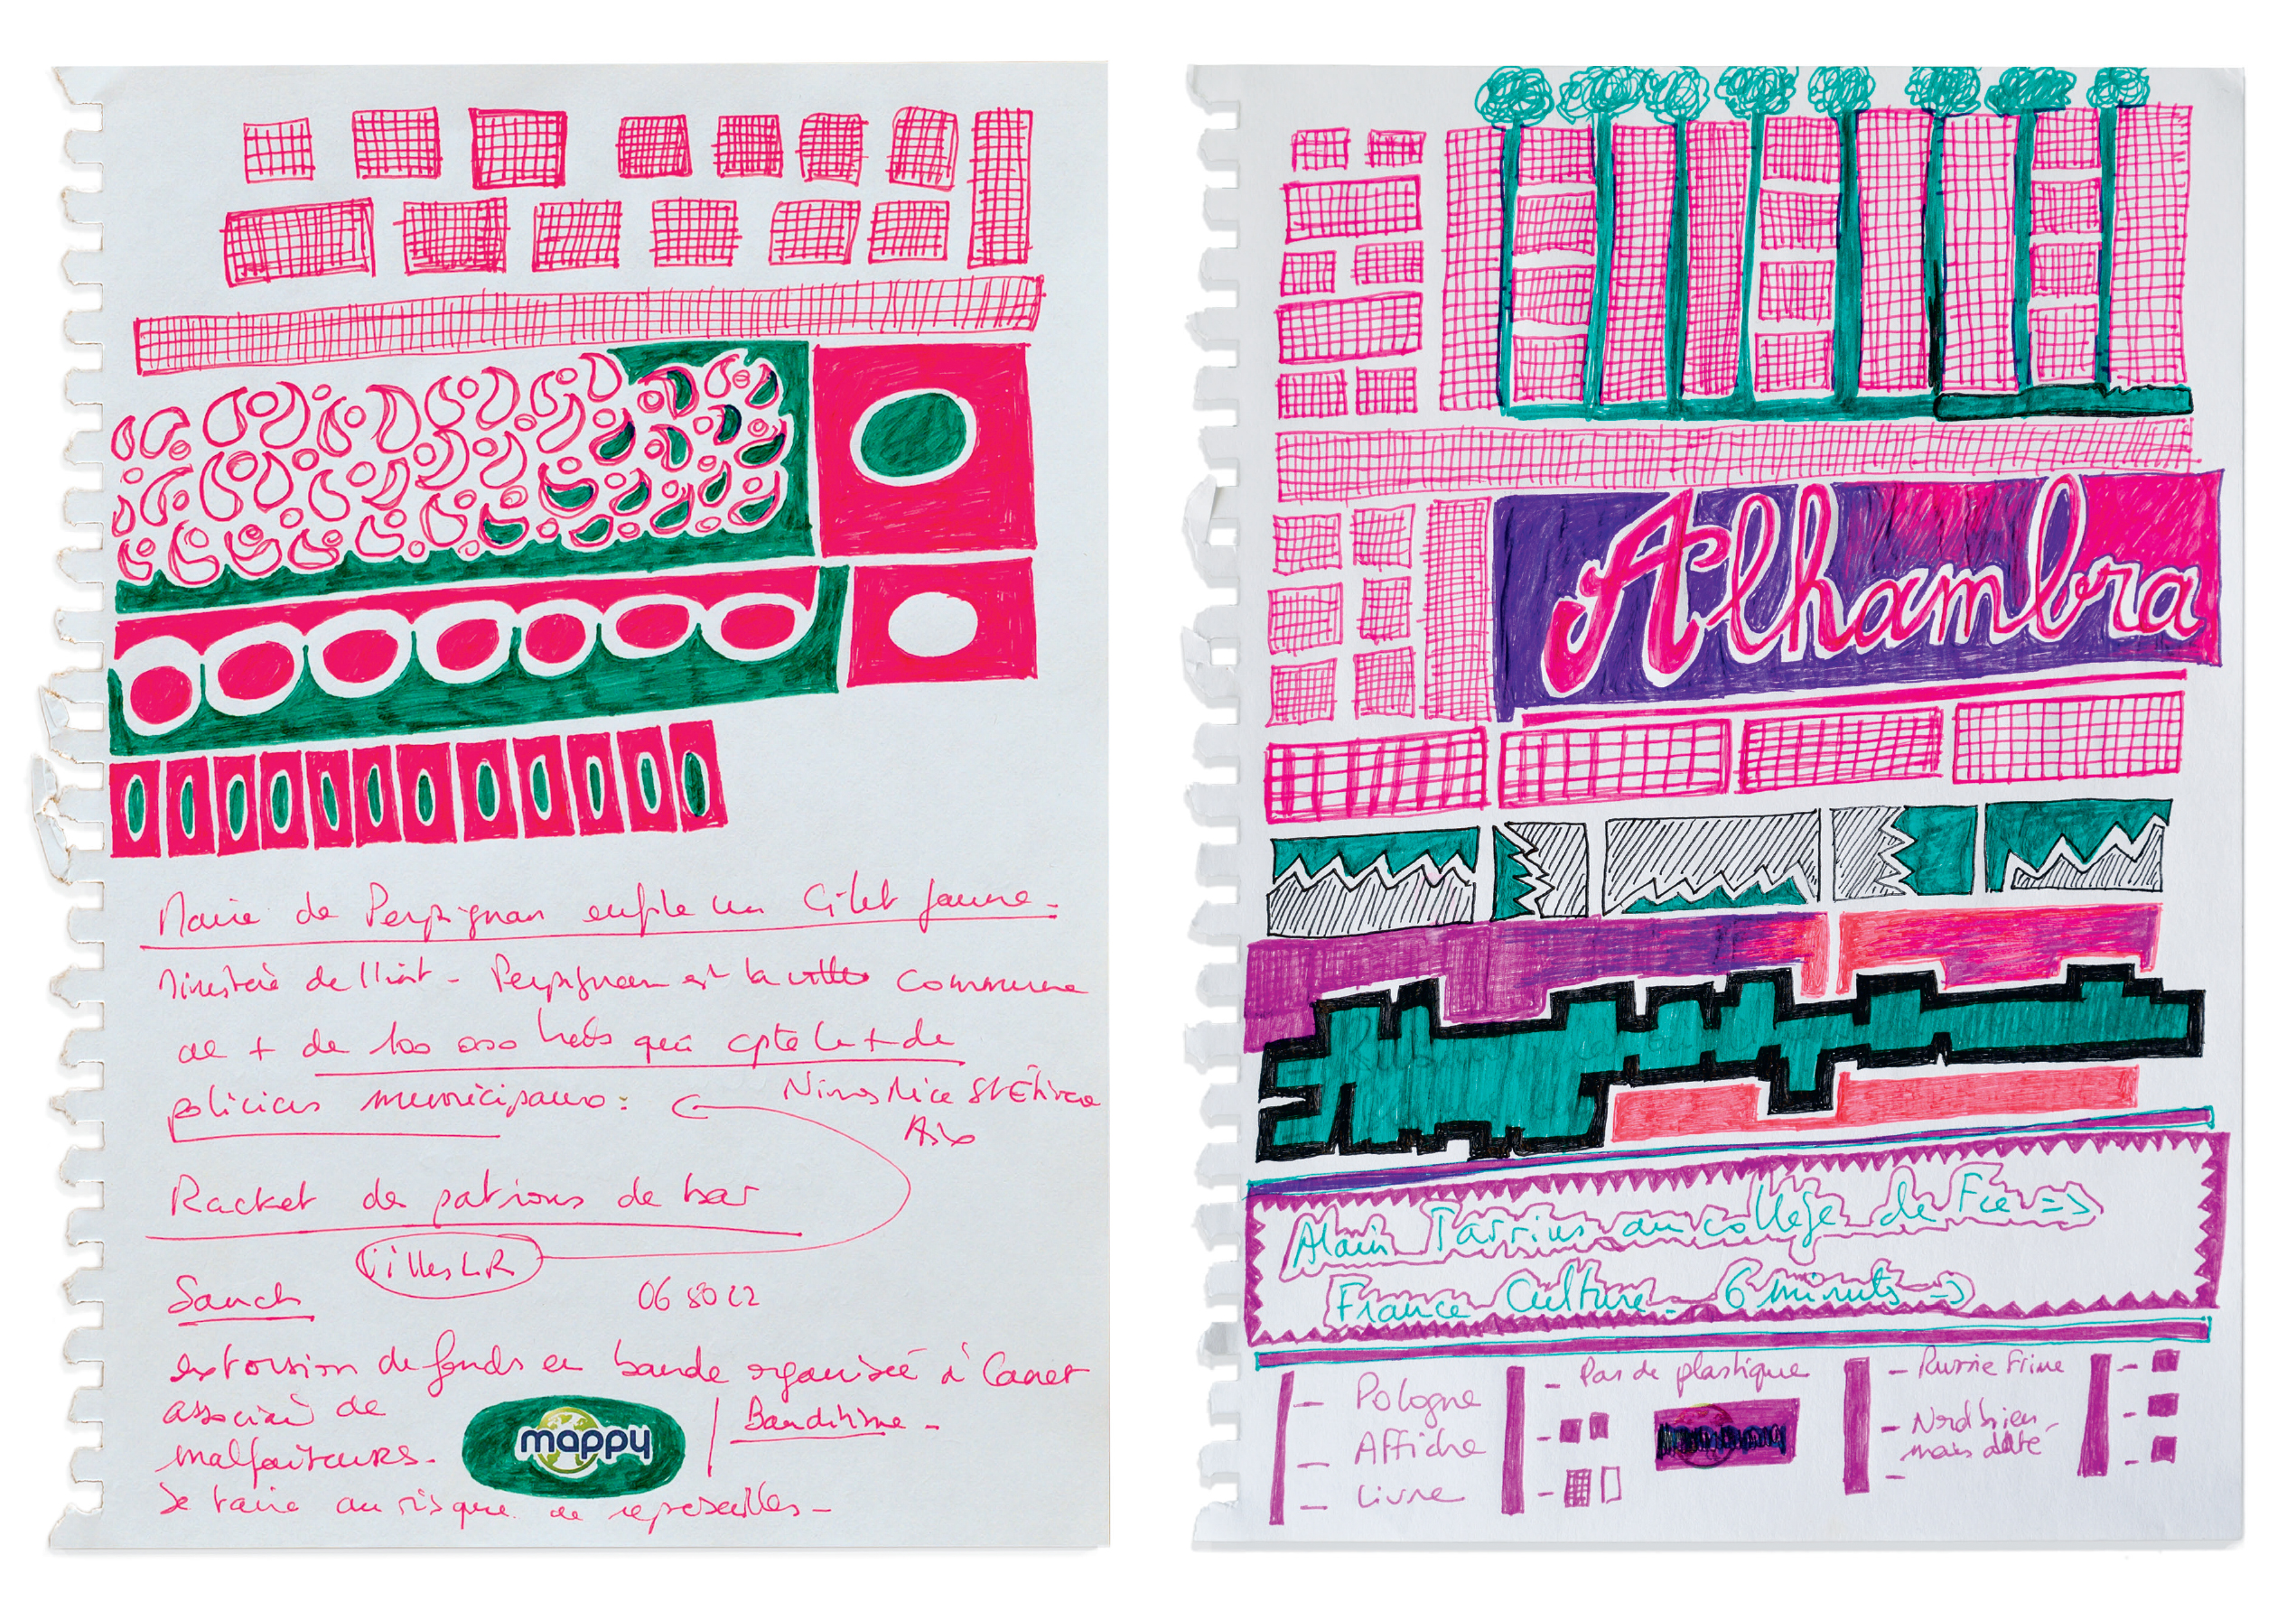 Mairie de Perpignan enfile un Gilet Jaune -
Ministère de l'int - Perpignan est la commune
de + de 100 000 habts qui cpte le + de
policiers municipaux :
Nimes Nice St Étienne
Aix
Racket de patrons de bar
Villes LR
Sanch
06 80 22
extorsion de fonds en bande organisée à Canet
associé de
malfaiteurs.
mappy
Banditisme -
Se taire au risque de représailles -
Alhambra
Alain Tarrius au collège de Fce =>
France Culture - 6 minuts =>
- Pologne
- Affiche
- Livre
- Pas de plastique
- Russie Frime
- Nord bien
mais daté